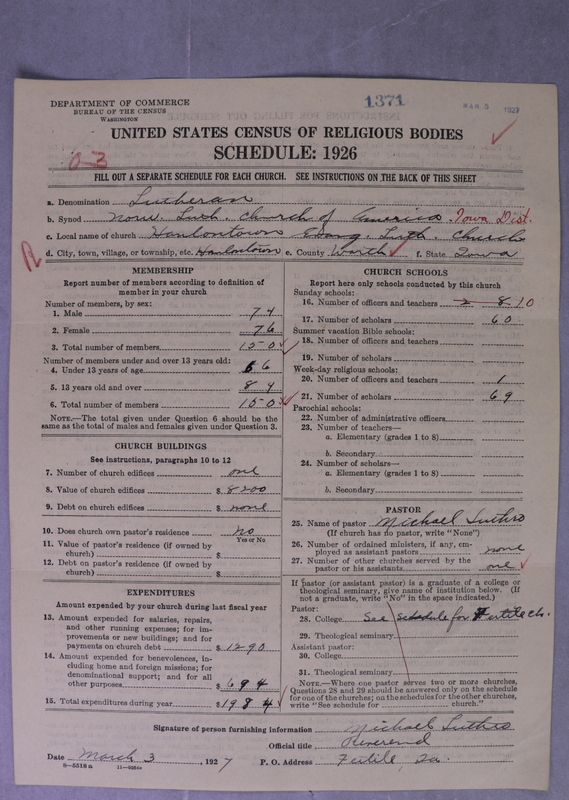 DEPARTMENT OF COMMERCE
BUREAU OF THE CENSUS
WASHINGTON
1371
MAR 5 1927
UNITED STATES CENSUS OF RELIGIOUS BODIES
SCHEDULE: 1926
0-3
FILL OUT A SEPARATE SCHEDULE FOR EACH CHURCH. SEE INSTRUCTIONS ON THE BACK OF THIS SHEET
a. Denomination Lutheran
b. Synod Norw. Luth. Church of America. Iowa Dist.
c. Local name of church Hanlontown Evang. Luth. Church
d. City, town, village, or township, etc. Hanlontown e. County Worth f. State Iowa
MEMBERSHIP
Report number of members according to definition of member in your church
Number of members, by sex:
1. Male 74
2. Female 76
3. Total number of members 150
Number of members under and over 13 years old:
4. Under 13 years of age 66
5. 13 years old and over 84
6. Total number of members 150
NOTE.—The total given under Question 6 should be the same as the total of males and females given under Question 3.
CHURCH BUILDINGS
See instructions, paragraphs 10 to 12
7. Number of church edifices one
8. Value of church edifices $ 8200
9. Debt on church edifices $ none
10. Does church own pastor's residence? No
Yes or No
11. Value of pastor's residence (if owned by church) $
12. Debt on pastor's residence (if owned by church) $
EXPENDITURES
Amount expended by your church during last fiscal year
13. Amount expended for salaries, repairs, and other running expenses; for improvements or new buildings; and for payments on church debt $ 1290
14. Amount expended for benevolences, including home and foreign missions; for denominational support; and for all other purposes $ 694
15. Total expenditures during year $ 1984
CHURCH SCHOOLS
Report here only schools conducted by this church
Sunday schools:
16. Number of officers and teachers 2 8 10
17. Number of scholars 60
Summer vacation Bible schools:
18. Number of officers and teachers
19. Number of scholars
Week-day religious schools:
20. Number of officers and teachers 1
21. Number of scholars 69
Parochial schools:
22. Number of administrative officers
23. Number of teachers—
a. Elementary (grades 1 to 8)
b. Secondary
24. Number of scholars—
a. Elementary (grades 1 to 8)
b. Secondary
PASTOR
25. Name of pastor Michael Luthro
(If church has no pastor, write "None")
26. Number of ordained ministers, if any, employed as assistant pastors none
27. Number of other churches served by the pastor or his assistants one
If pastor (or assistant pastor) is a graduate of a college or theological seminary, give name of institution below. (If not a graduate, write "No" in the space indicated.)
Pastor:
28. College See schedule for Fertile ch.
29. Theological seminary
Assistant pastor:
30. College
31. Theological seminary
NOTE.—Where one pastor serves two or more churches, Questions 28 and 29 should be answered only on the schedule for one of the churches; on the schedules for the other churches, write "See schedule for church."
Signature of person furnishing information Michael Luthro
Official title Reverend
Date March 3, 1927 P. O. Address Fertile, Ia.